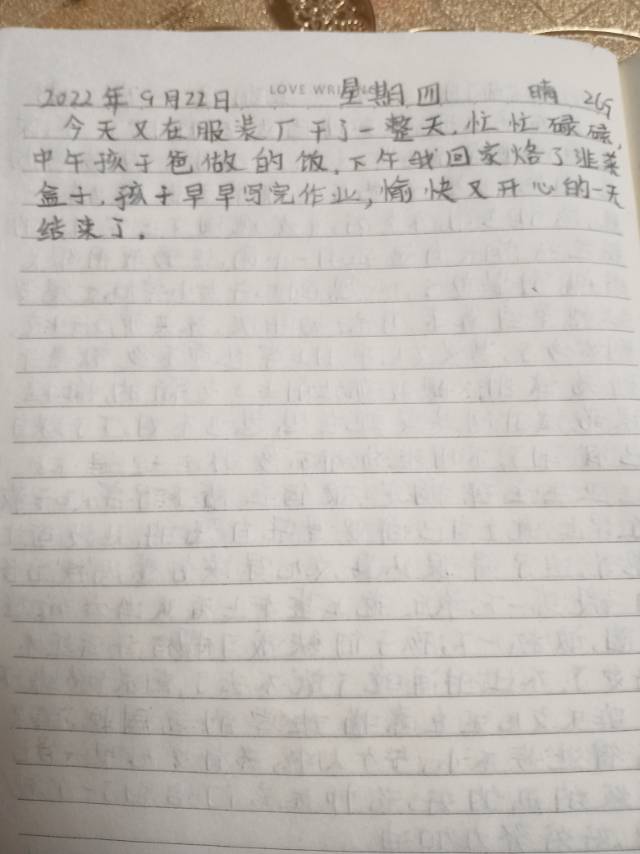 LOVE WRITING
2022年9月22日 星期四 晴 265
今天又在服装厂干了一整天,忙忙碌碌,
中午孩子爸做的饭,下午我回家烙了韭菜
盒子,孩子早早写完作业,愉快又开心的一天
结束了。